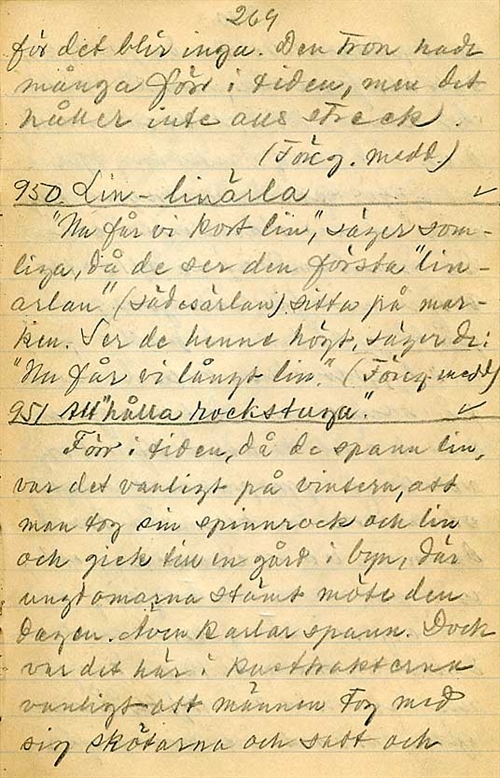 269
för det blir inga. Den tron hade
många förr i tiden, men det
håller inte alls streck.
(Föreg. medd.)
950. Lin - linärla
"Nu får vi kort lin", säger som-
liga, då de ser den första "lin-
ärlan" (sädesärlan) sitta på mar-
ken. Ser de henne högt, säger de:
"Nu får vi långt lin." (Föreg. medd.)
951 Att "hålla rockstuga".
Förr i tiden, då de spann lin,
var det vanligt på vintern, att
man tog sin spinnrock och lin
och gick till en gård i byn, där
ungdomarna stämt möte den
dagen. Även karlar spann. Dock
var det här i kusttrakterna
vanligt att männen tog med
sig skötarna och satt och